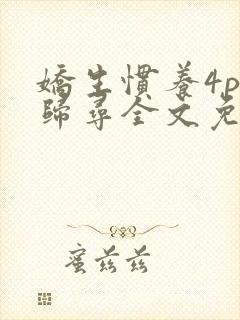 嬌生慣養4p
歸尋全文免
蜜茲茲